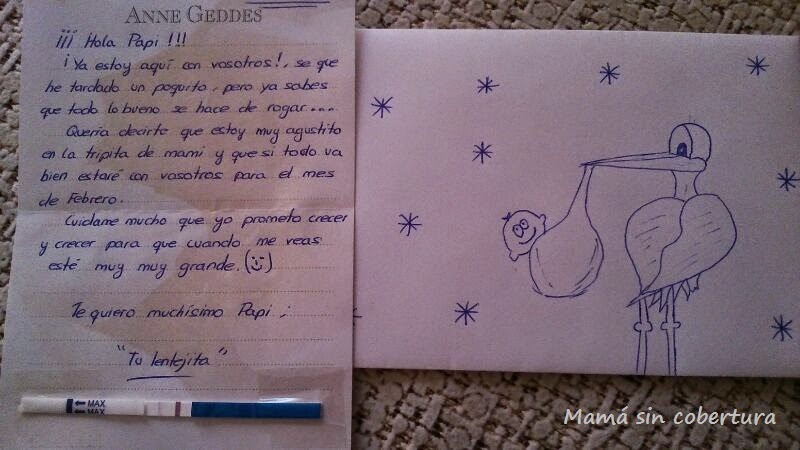 ANNE GEDDES
¡¡¡ Hola Papi !!!
¡Ya estoy aquí con vosotros!, se que
he tardado un poquito, pero ya sabes
que todo lo bueno se hace de rogar....
Quería decirte que estoy muy agustito
en la tripita de mami y que si todo va
bien estaré con vosotros para el mes
de Febrero.
Cuidame mucho que yo prometo crecer
y crecer para que cuando me veas
esté muy muy grande.
Te quiero muchísimo Papi;
"Tu lentejita"
MAX
MAX
Mamá sin cobertura